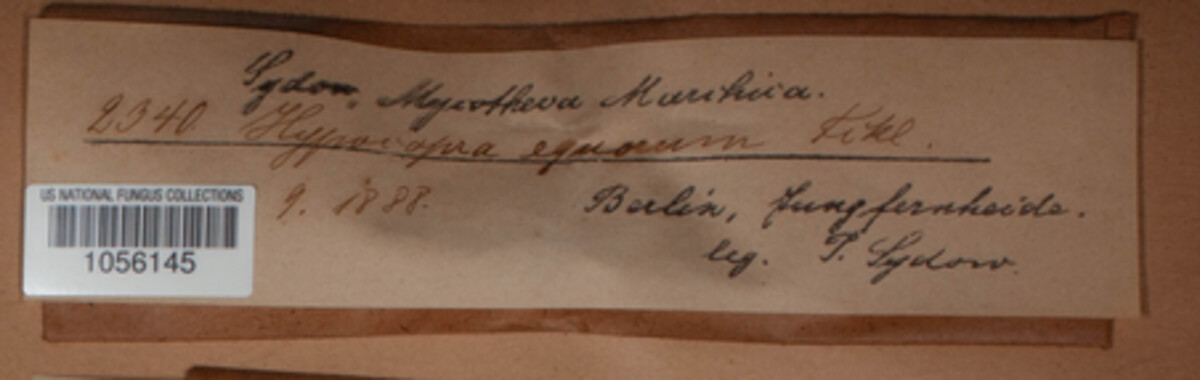 Sydow, Mycotheca Marchica.
2340. Hypocopra equorum Fckl.
9. 1888. Berlin, Jungfernheide.
leg. P. Sydow
US NATIONAL FUNGUS COLLECTIONS
1056145